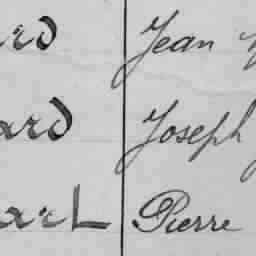 ard Jean
ard Joseph
arl Pierre